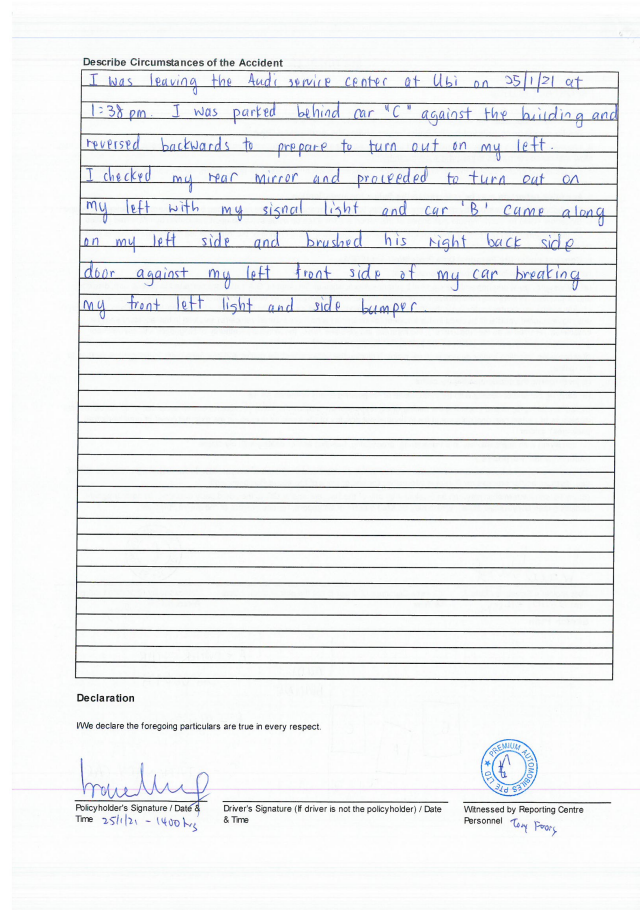 Describe Circumstances of the Accident
I was leaving the Audi service center at Ubi on 25/1/21 at
1:38 pm. I was parked behind car "C" against the building and
reversed backwards to prepare to turn out on my left.
I checked my rear mirror and proceeded to turn out on
my left with my signal light and car 'B' came along
on my left side and brushed his right back side
door against my left front side of my car breaking
my front left light and side bumper.
Declaration
I/We declare the foregoing particulars are true in every respect.
PREMIUM AUTOMOBILES PTE LTD
Policyholder's Signature / Date &
Time 25/1/21 - 1400 hrs
Driver's Signature (If driver is not the policyholder) / Date
& Time
Witnessed by Reporting Centre
Personnel